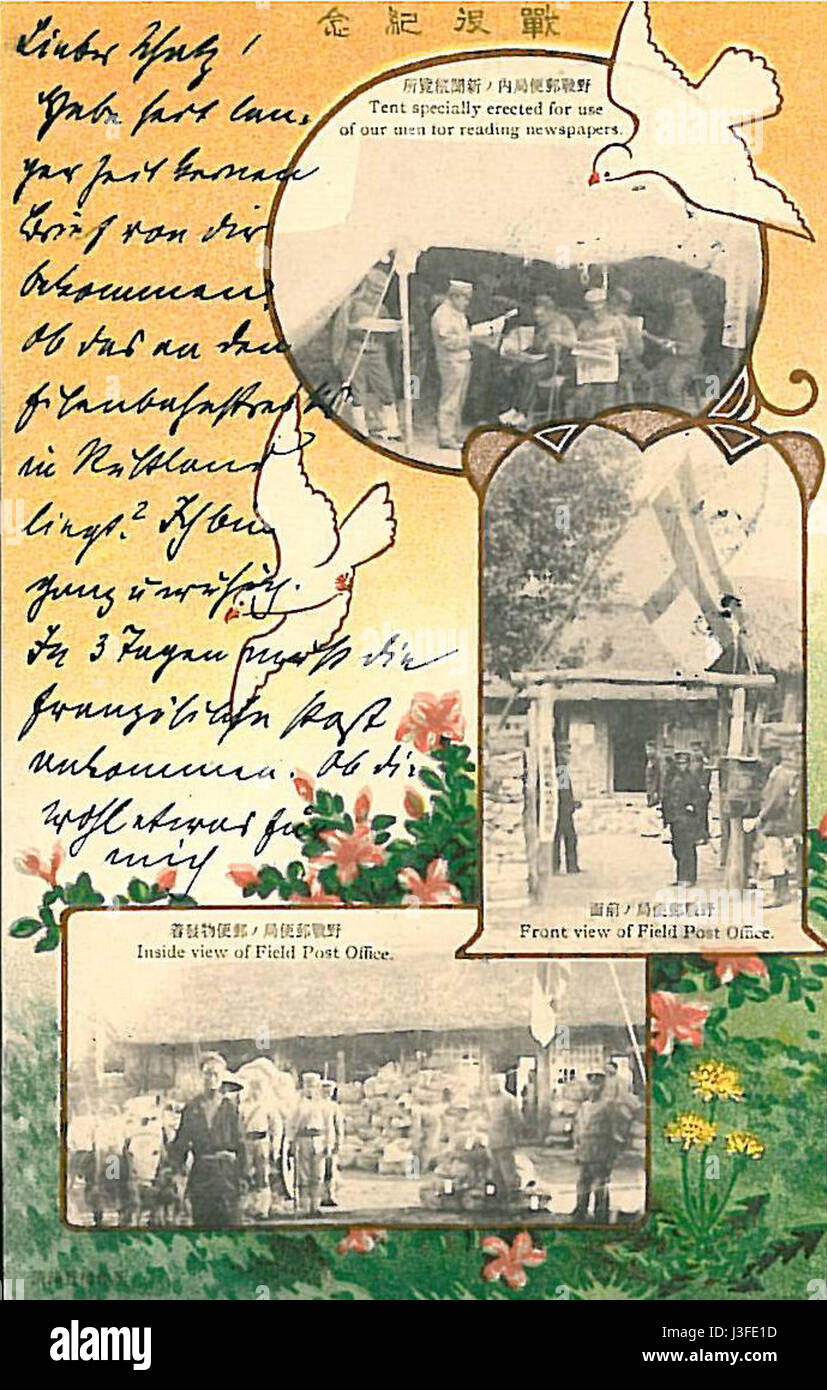 戰役紀念
Lieber Schatz!
Habe seit lan-
ger Zeit keinen
Brief von dir
bekommen.
Ob das an den
Eisenbahnstreiks
in Rußland
liegt? Ich bin
ganz unruhig.
In 3 Tagen muß die
französische Post
ankommen. Ob die
wohl etwas für
mich
野戰郵便局内ノ新聞縱覽所
Tent specially erected for use
of our men for reading newspapers.
野戰郵便局ノ前面
Front view of Field Post Office.
野戰郵便局ノ郵便物發着
Inside view of Field Post Office.
alamy
Image ID: J3FE1D
www.alamy.com